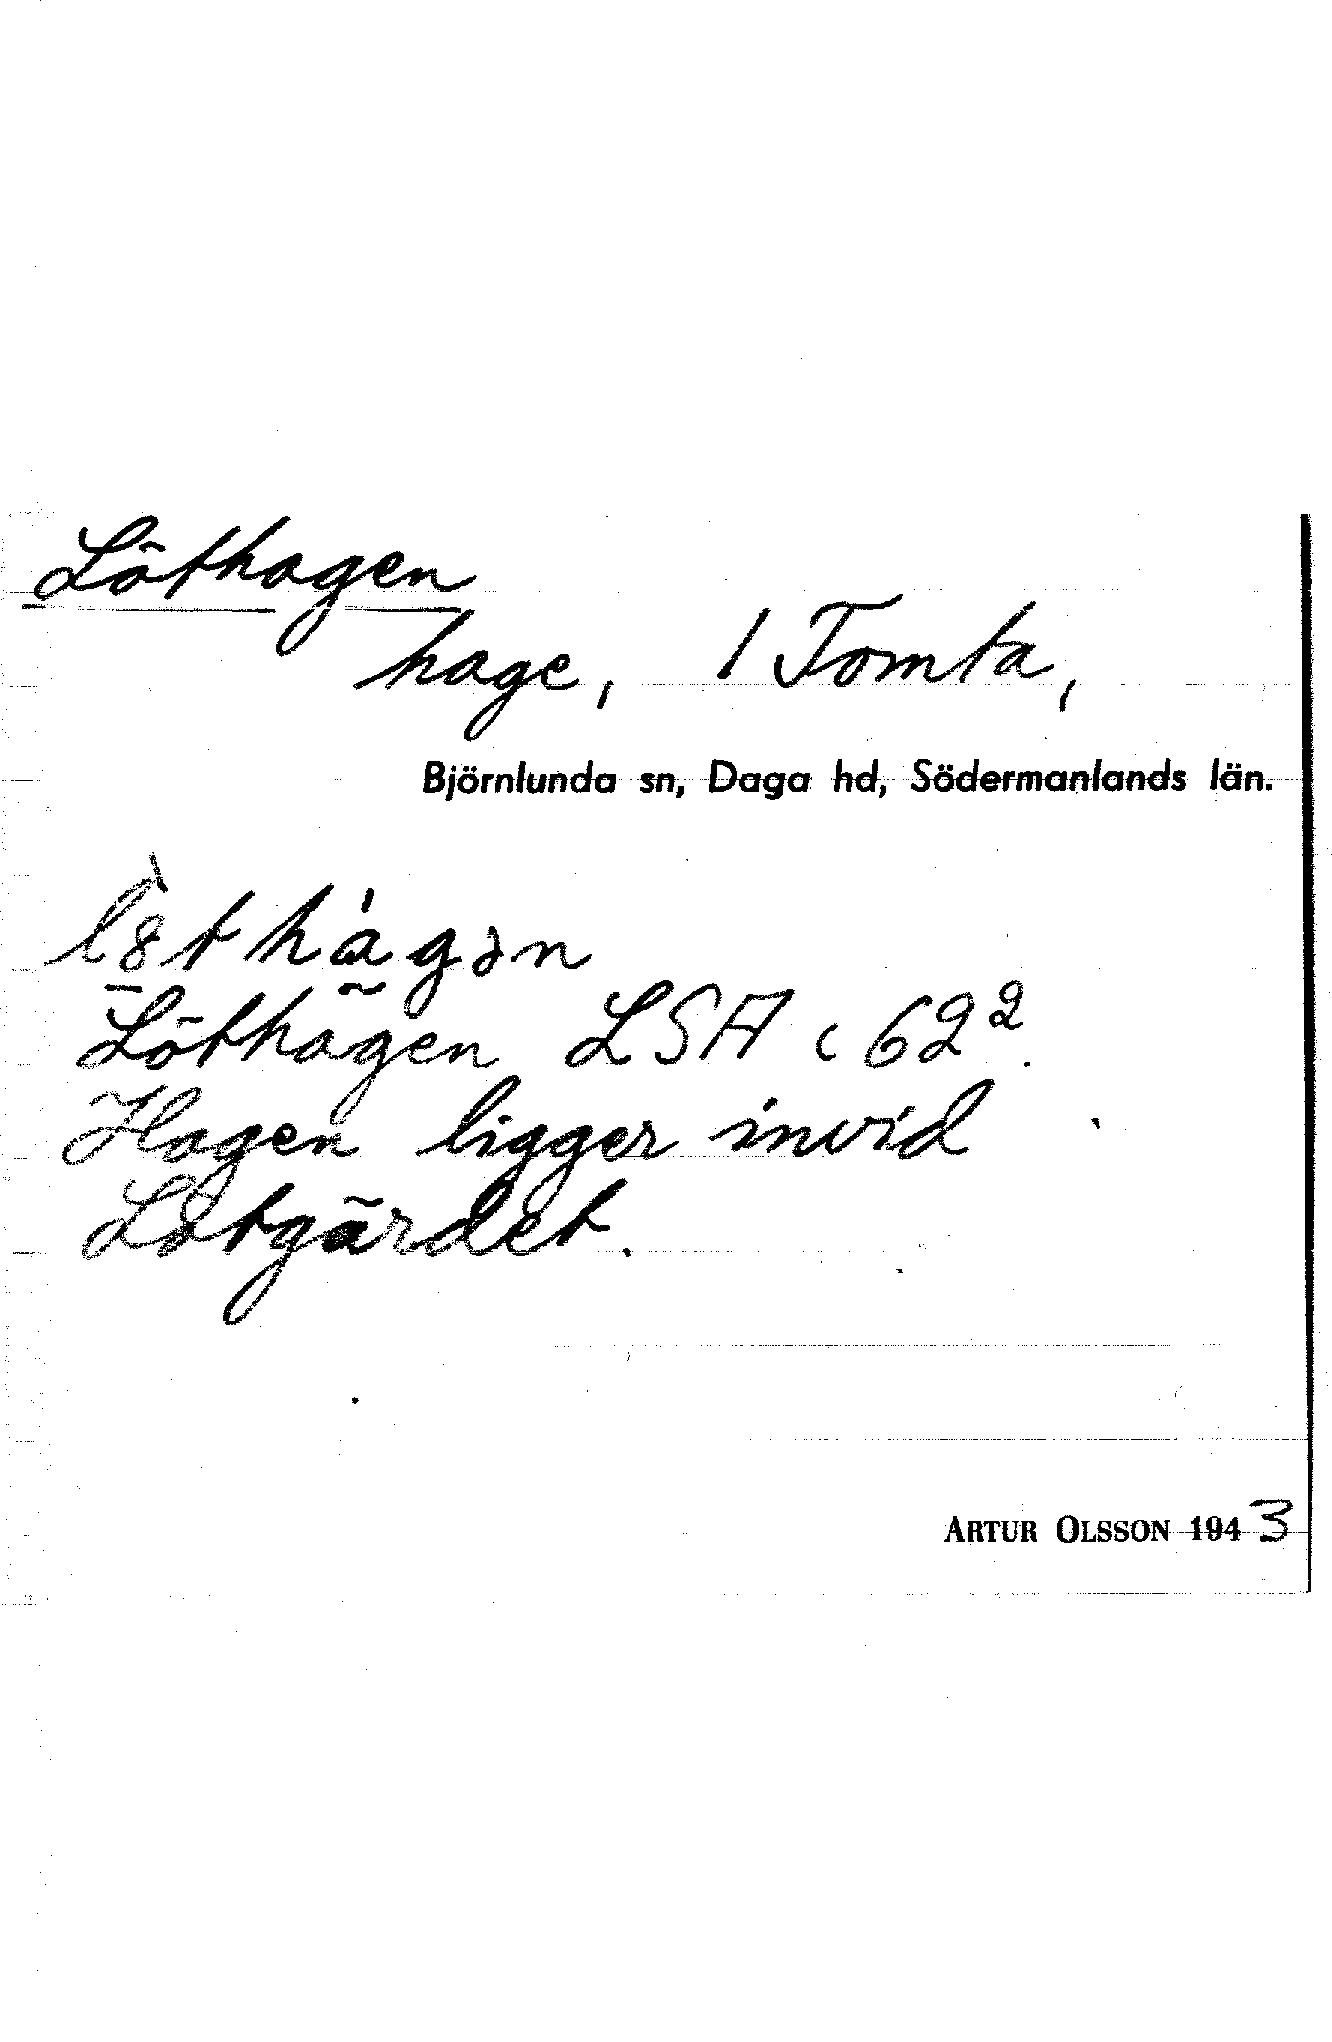 Löthagen
hage, 1 Tomta,
Björnlunda sn, Daga hd, Södermanlands län.
l8̀t hágən
Löthagen LSA c 62².
Hagen ligger invid
Lötgärdet.
ARTUR OLSSON 1943